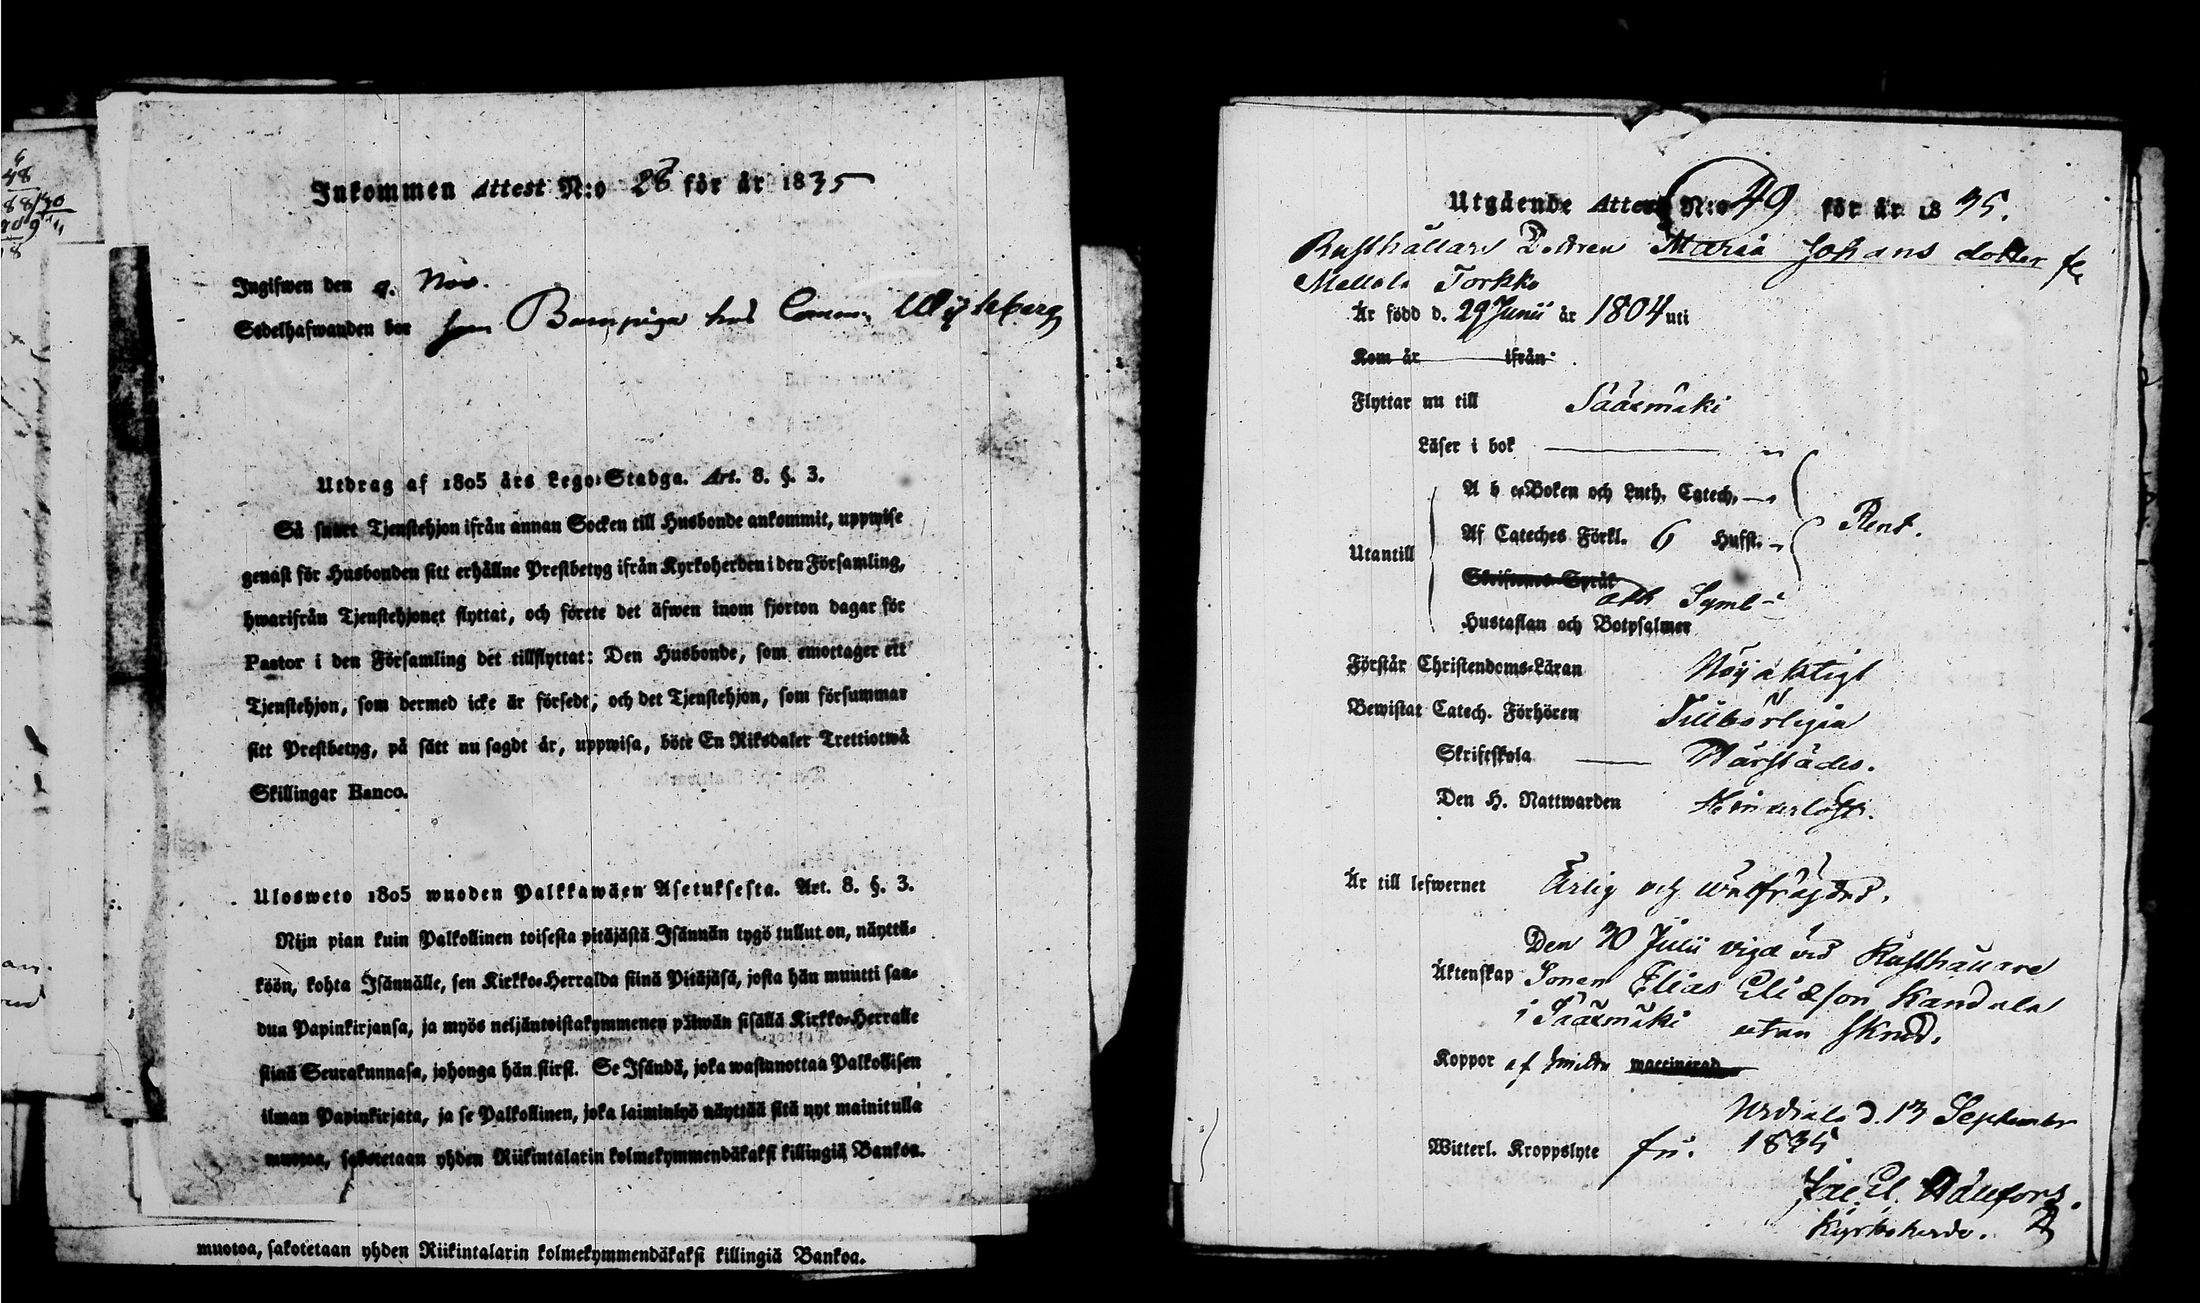 Inkommen Attest N:o 28 för år 1835
Ingifwen den 9. Nov.
Sedelhafwanden bor som Barnpiga hos
Utdrag af 1805 års Lego-Stadga. Art. 8. §. 3.
Så snart Tjenstehjon ifrån annan Socken till Husbonde ankommit, uppwise
genast för Husbonden sitt erhållne Prestbetyg ifrån Kyrkoherden i den Församling,
hwarifrån Tjenstehjonet flyttat, och förete det äfwen inom fjorton dagar för
Pastor i den Församling det tillflyttat: Den Husbonde, som emottager ett
Tjenstehjon, som dermed icke är försedt, och det Tjenstehjon, som försummar
sitt Prestbetyg, på sätt nu sagdt är, uppwisa, böte En Riksdaler Trettiotwå
Skillingar Banco.
Ulosweto 1805 wuoden Palkkawäen Asetuksesta. Art. 8. §. 3.
Nijn pian kuin Palkollinen toisesta pitäjästä Isännän tygö tullut on, näyttä-
köön, kohta Isännälle, sen Kirkko-Herralda siinä Pitäjäsä, josta hän muutti saa-
dun Papinkirjansa, ja myös neljäntoistakymmenen päiwän sisällä Kirkko-Herralle
siinä Seurakunnasa, johonga hän siirsi. Se Isändä, joka wastanottaa Palkollisen
ilman Papinkirjata, ja se Palkollinen, joka laiminlyö näyttää sitä nyt mainitulla
muotoa, sakotetaan yhden Riikintalarin kolmekymmendäkaksi killingiä Bankoa.
muotoa, sakotetaan yhden Riikintalarin kolmekymmendäkaksi killingiä Bankoa.
Utgående Attest N:o 49 för år 1835.
Rusthållare Dottren Maria Johans dotter
Mellola Torkko
Är född d. 29 Junii år 1804 uti
Kom år ifrån
Flyttar nu till Sääxmäki
Läser i bok
A b c-Boken och Luth. Catech.
Af Cateches Förkl. 6 Hufst.
Rent.
Utantill
Skriftenes Språk
Ath Symb
Hustaflan och Botpsalmer
Förstår Christendoms-Läran Nöjaktigt
Bewistat Catech. Förhören Tillbörligen
Skriftskola Wårstädes.
Den H. Nattwarden Hinderlös
Är till lefwernet Ärlig och wälfrägdad.
Den 30 Julii vigd vid Rusthållare
Äktenskap Sonen Elias Eliæson Kandala
i Sääxmäki utan skrud.
Koppor af smitta waccinerad
Urdiala d. 13 September
Witterl. Kroppslyte fri. 1835
Wallfors.
Kyrkoherde.